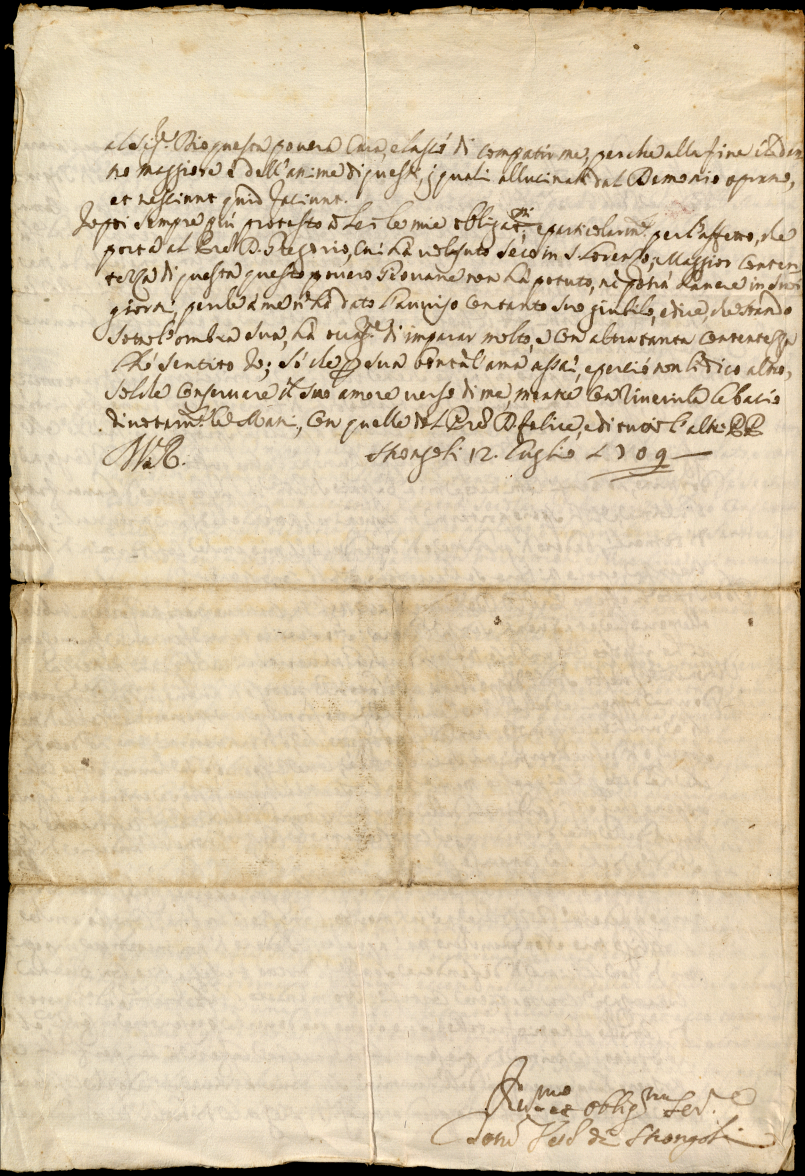 al Sig.r Dio questa povera Casa, e lasciò di compatirme, perche alla fine il dan
no maggiore è dell'anime di questi, i quali allucinati dal Demonio oprano,
et nesciunt quid faciunt.
Io poi sempre più protesto à Lei le mie obligat.ni e particolarm.te per l'affetto, che
porta al Pre D. Gregorio, cui hà voluto seco in S. Lorenzo, Maggior conten
tezza di questa questo povero Giovane non hà potuto, nè potrà havere in suoi
giorni, perche à me n'hà dato l'avviso con tanto suo giubilo, e dice, che stando
sotto l'ombra sua, hà di imparar molto, e con altretanta contentezza
l'hò sentito Io; sì che sua bontà l'ama assai, e perciò non li dico altro,
solo conservare il suo amore verso di me, mentre con riverirla le bacio
le Mani, con quelle del Pre D. Felice, e di tutti l'altri PP
Strongoli 12. Luglio 1709
oblig.mo Ser.e
Dom. Vesc. di Strongoli